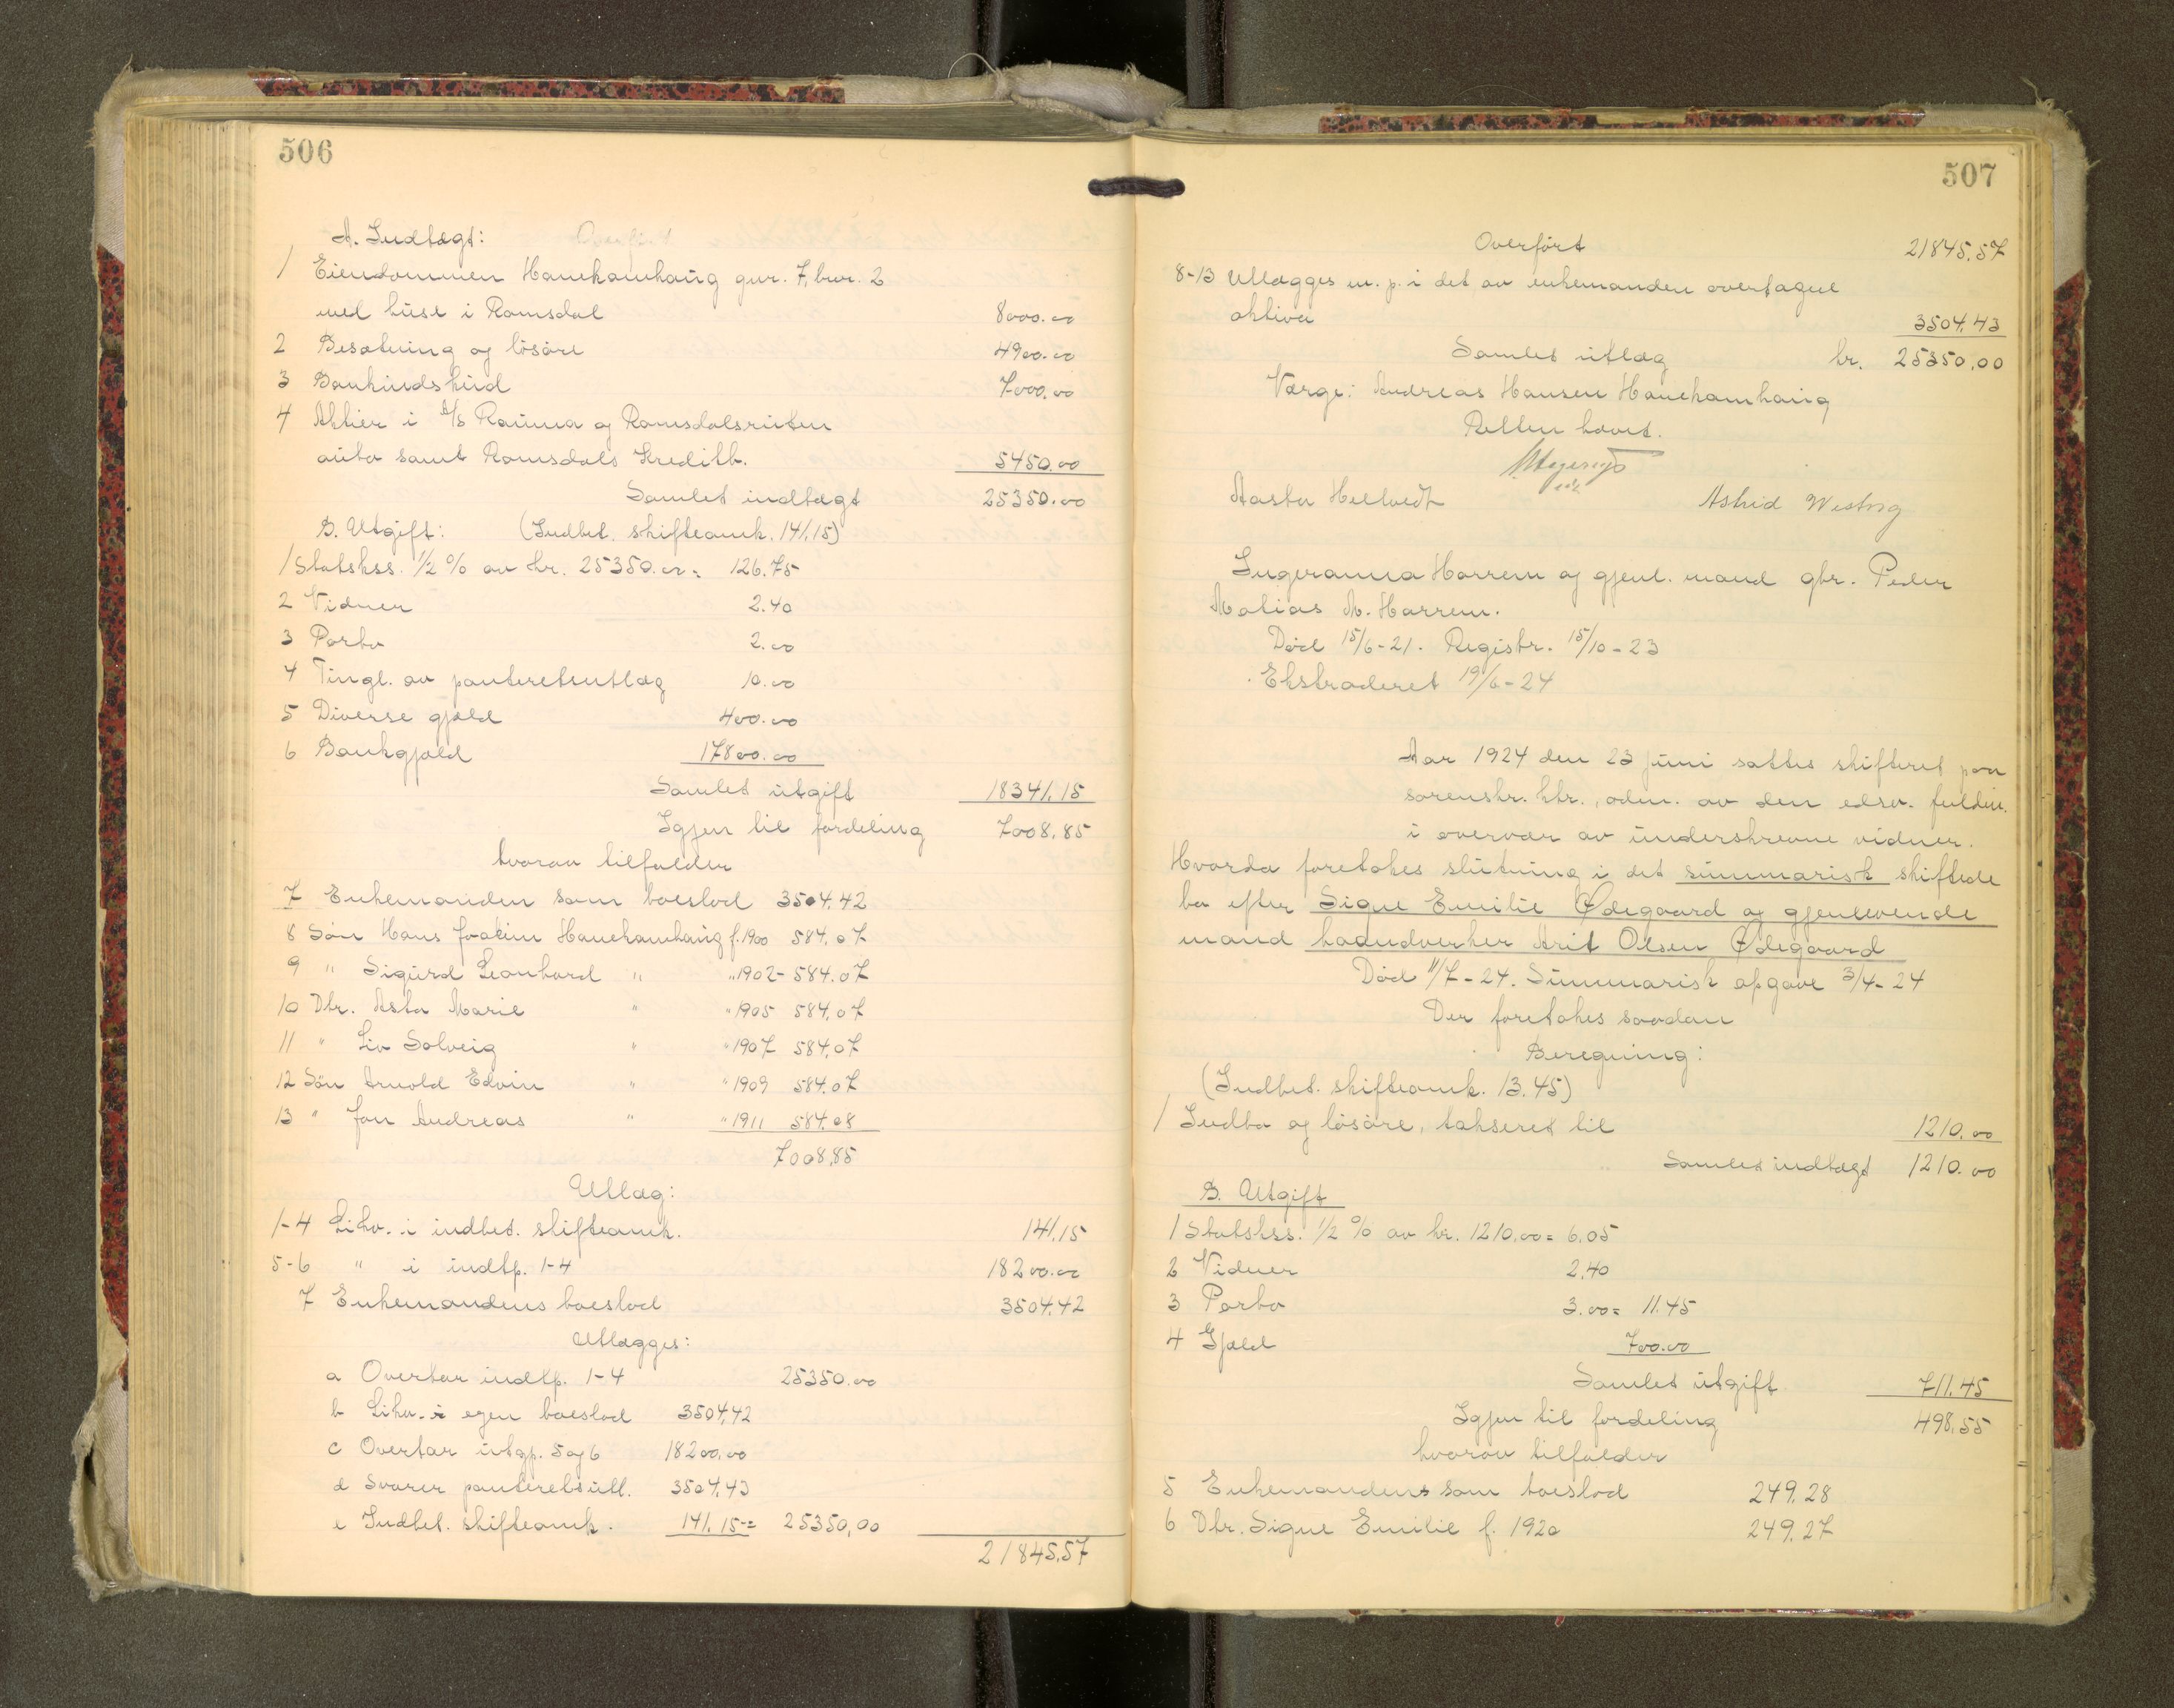 506
A. Indtægt:
1 Eiendommen Hanekamhaug gnr. 7, bnr. 2
med huse i Romsdal 8000.00
2 Besætning og løsøre 4900.00
3 Bankindskud 7000.00
4 Aktier i A/S Rauma og Romsdalsruten
auto samt Romsdals Kreditb. 5450.00
Samlet indtægt 25350.00
B. Utgift: (Indbet. skifteomk. 141.15)
1 Statskss. 1/2 % av kr. 25350.00 = 126.75
2 Vidner 2.40
3 Porto 2.00
4 Tingl. av panteretsutlæg 10.00
5 Diverse gjæld 400.00
6 Bankgjæld 17800.00
Samlet utgift 18341.15
Igjen til fordeling 7008.85
hvorav tilfalder
7 Enkemanden som boeslod 3504.42
8 Søn Hans Joakim Hanekamhaug f. 1900 584.07
9 " Sigurd Leonhard " " 1902 - 584.07
10 Dtr. Asta Marie " " 1905 584.07
11 " Liv Solveig " " 1907 584.07
12 Søn Arnold Edvin " " 1909 584.07
13 " Jon Andreas " " 1911 584.08
7008.85
Utlæg:
1-4 Likv. i indbet. skifteomk. 141.15
5-6 " i indtp. 1-4 18200.00
7 Enkemandens boeslod 3504.42
Utlægges:
a Overtar indtp. 1-4 25350.00
b Likv. i egen boeslod 3504.42
c Overtar utgp. 5 og 6 18200.00
d Svarer panteretsutl. 3504.43
e Indbet. skifteomk. 141.15 = 25350,00
21845.57
507
Overført 21845.57
8-13 Utlægges m. p. i det av enkemanden overtagne
aktiva 3504.43
Samlet utlæg kr. 25350.00
Værge: Andreas Hansen Hanekamhaug
Retten hævet.
Aasta Helvedt Astrid
Ingeranna Harrem og gjenl. mand gbr. Peder
Matias M. Harrem.
Død 15/6-21. Registr. 15/10-23
Ekstraderet 19/6-24
Aar 1924 den 23 juni sattes skifteret paa
sorenskr. ktr., adm. av den edsv. fuldm.
i overvær av underskrevne vidner.
Hvorda foretokes slutning i det summarisk skiftede
bo efter Signe Emilie Ødegaard og gjenlevende
mand haandverker Arit Olsen Ødegaard
Død 11/7-24. Summarisk opgave 3/4-24
Der foretokes saadan
Beregning:
(Indbet. skifteomk. 13.45)
1 Indbo og løsøre, takseret til 1210.00
Samlet indtægt 1210.00
B. Utgift
1 Statskss. 1/2 % av kr. 1210.00 = 6.05
2 Vidner 2.40
3 Porto 3.00 = 11.45
4 Gjæld 700.00
Samlet utgift 711.45
Igjen til fordeling 498.55
hvorav tilfalder
5 Enkemandens som boeslod 249.28
6 Dtr. Signe Emilie f. 1920 249.27